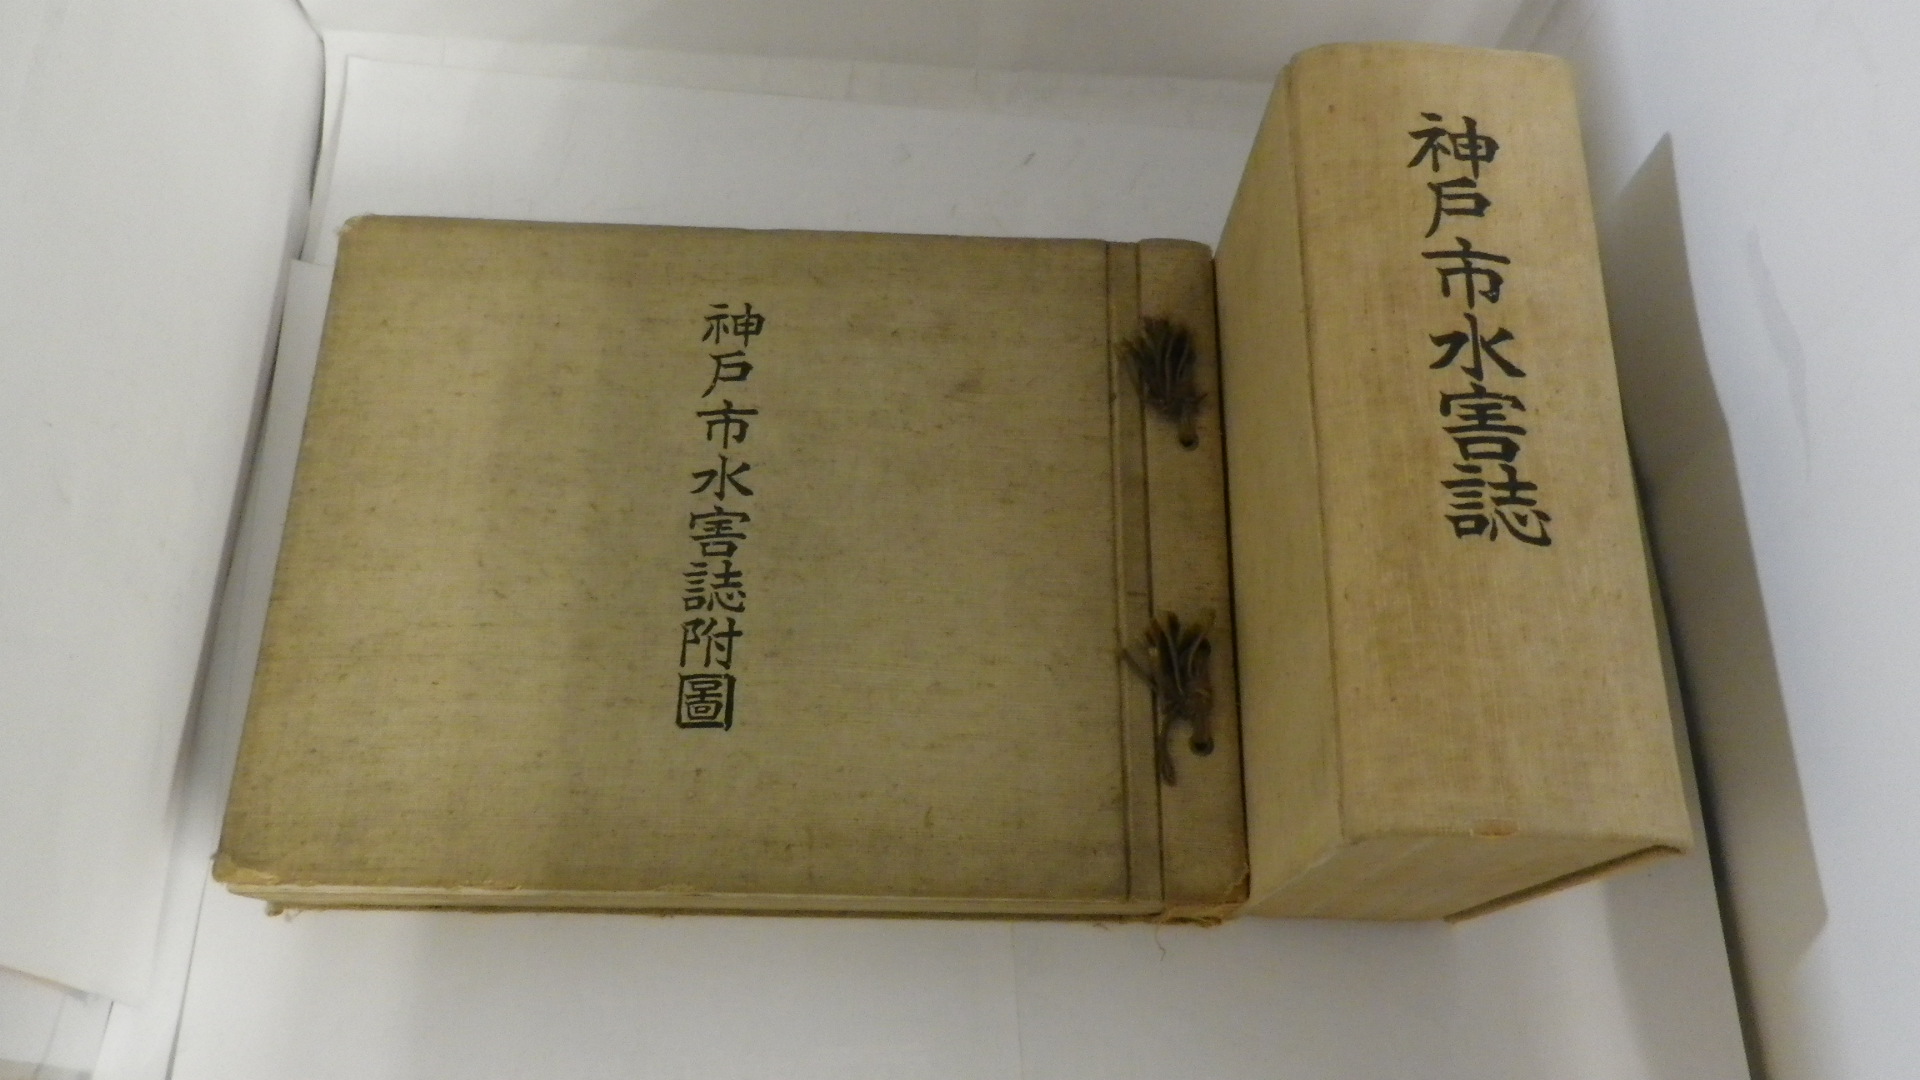 神戸市水害誌附圖
神戸市水害誌